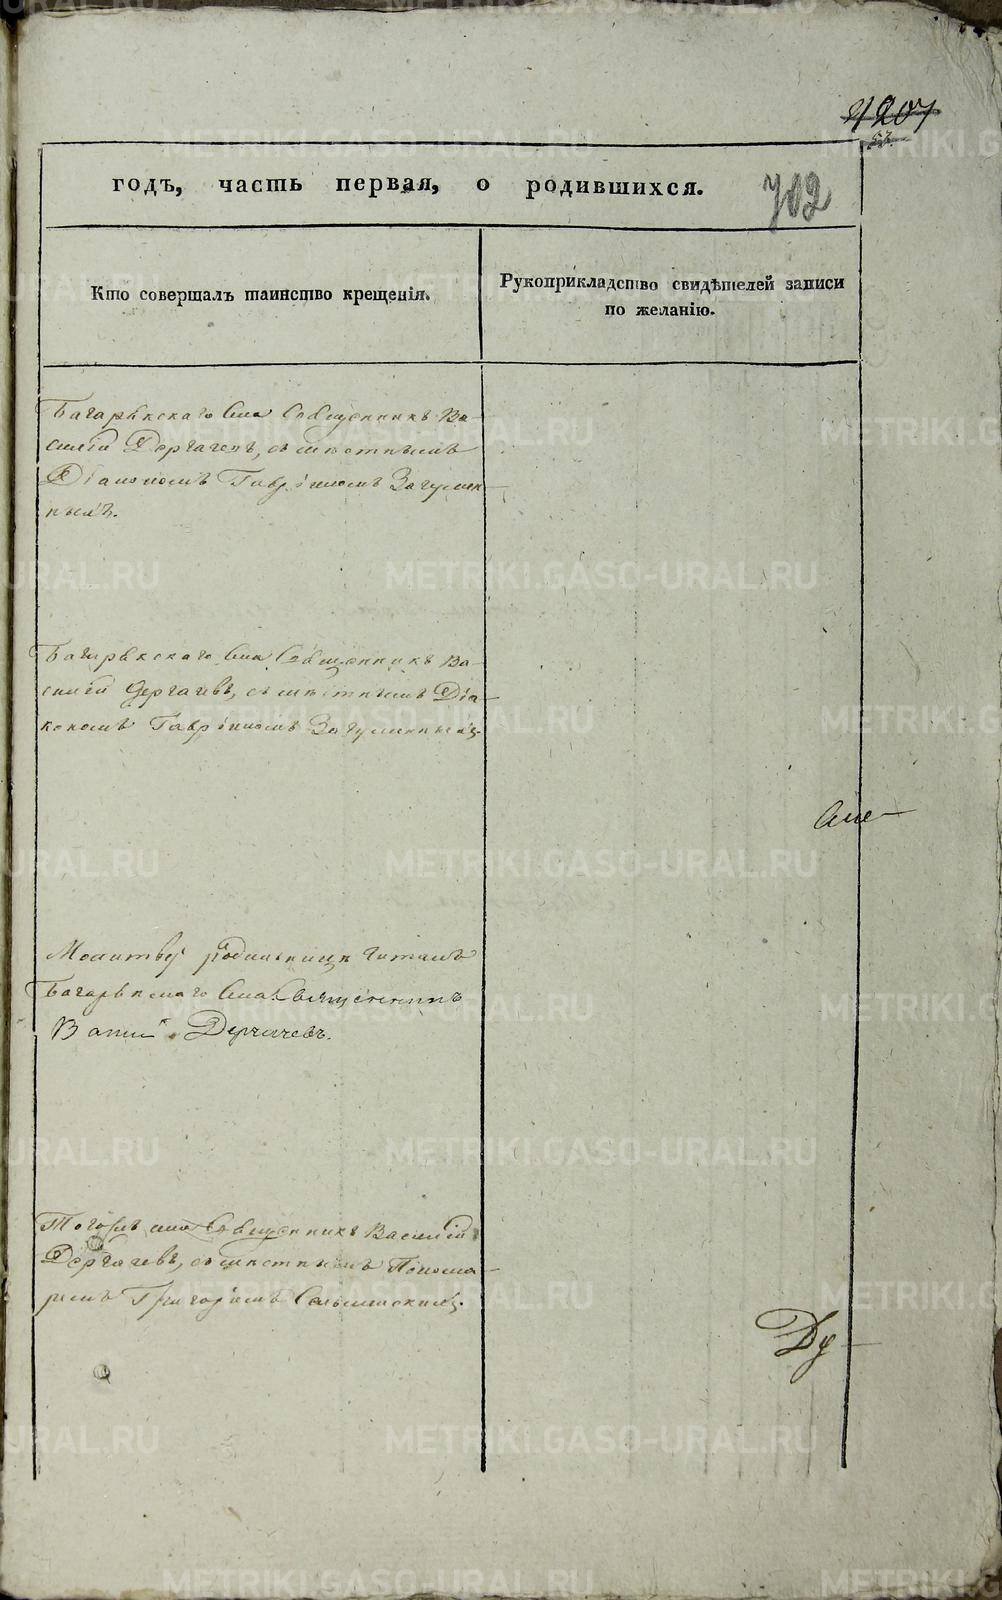 1207
годъ, часть первая, о родившихся.
702
Кто совершалъ таинство крещенія.
Рукоприкладство свидѣтелей записи
по желанію.
Багарякскаго Села Священникъ Ва-
силій Дергачевъ, съ мѣстнымъ
Діакономъ Гавріиломъ Загумен-
нымъ.
Багарякскаго Села Священникъ Ва-
силій Дергачевъ, съ мѣстнымъ Діа-
кономъ Гавріиломъ Загуменнымъ
Молитву родильницѣ читалъ
Багарякскаго Села Священникъ
Василій Дергачевъ.
Тогожъ села Священникъ Василій
Дергачевъ, съ мѣстнымъ Понома-
ремъ Григоріемъ
METRIKI.GASO-URAL.RU